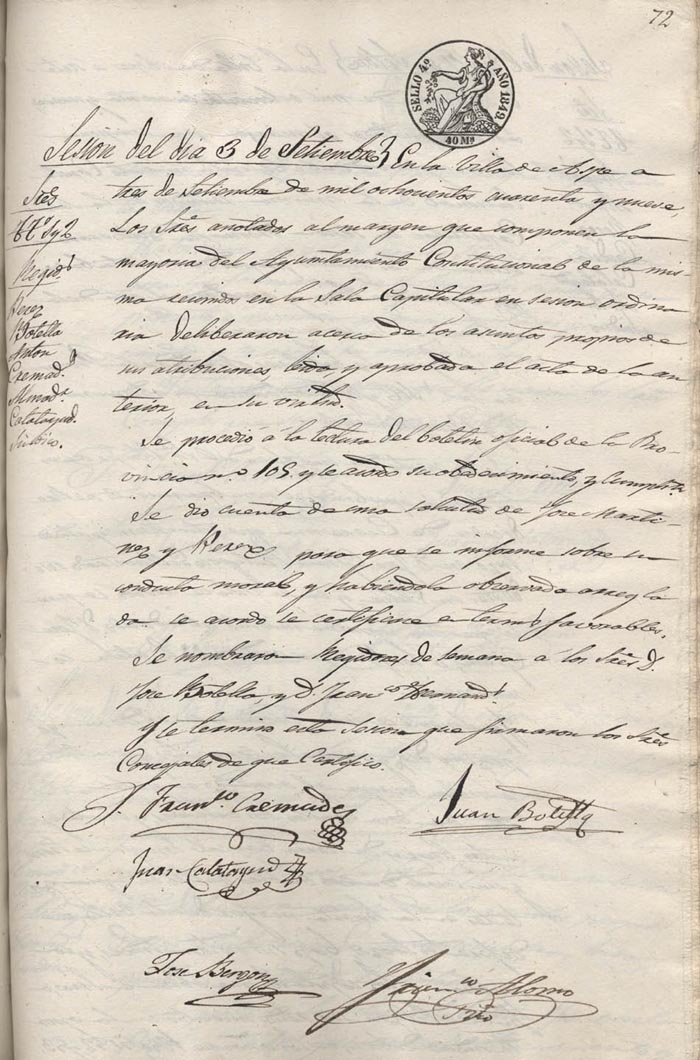 72
SELLO 4º AÑO 1849.
40 Ms
Sesion del dia 3 de Setiembre} En la Villa de Aspe a
tres de Setiembre de mil ochocientos cuarenta y nueve,
Los Sres anotados al margen que componen la
mayoria del Ayuntamiento Constitucional de la mis
ma reunidos en la Sala Capitular en sesion ordina
ria deliberaron acerca de los asuntos propios de
sus atribuciones, leida y aprobada el acta de la an
terior, en su virtud.
Se procedió á la lectura del boletin oficial de la Pro-
vincia nº 105. y se acordo su obedecimiento, y cumplimto
Se dio cuenta de una solicitud de Jose Marti-
nez y Perez para que se informe sobre su
conducta moral, y habiendola observado arregla
da se acordo se certifique en terms favorables.
Se nombraron Regidores de semana á los Sres D.
Jose Botella, y D. Franco Hernands
Y se termino esta sesion que firmaron los Sres
Concejales de que Certifico.
Sres
Regids
Perez
Botella
Anton
Cremads
Almods
Calatayud.
Sindico.
Franco Cremades
Juan Botella
Juan Calatayud
Jose
Alonso
Srio